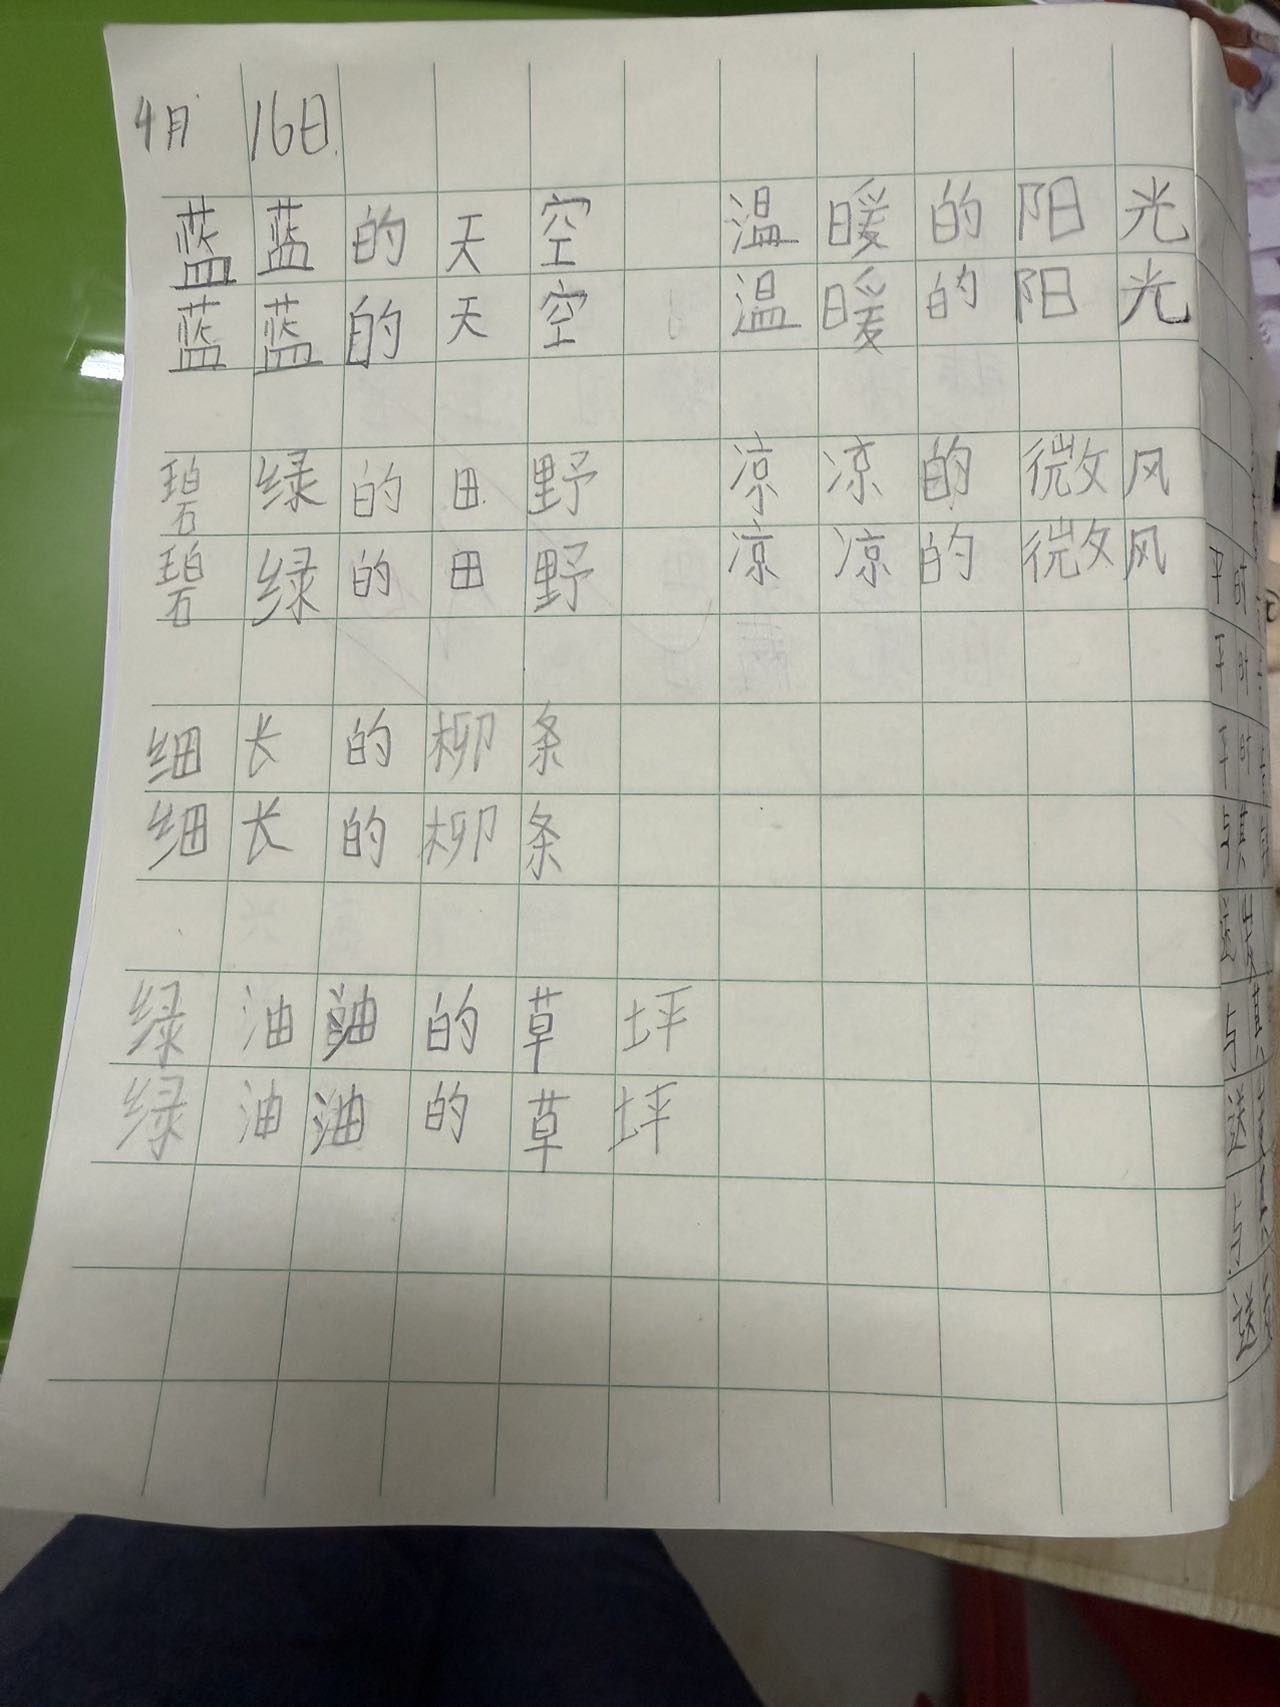 4月 16日
蓝蓝的天空 温暖的阳光
蓝蓝的天空 温暖的阳光
碧绿的田野 凉凉的微风
碧绿的田野 凉凉的微风
细长的柳条
细长的柳条
绿油油的草坪
绿油油的草坪
平时
平时
平时
与其
送
与其
送
与
送